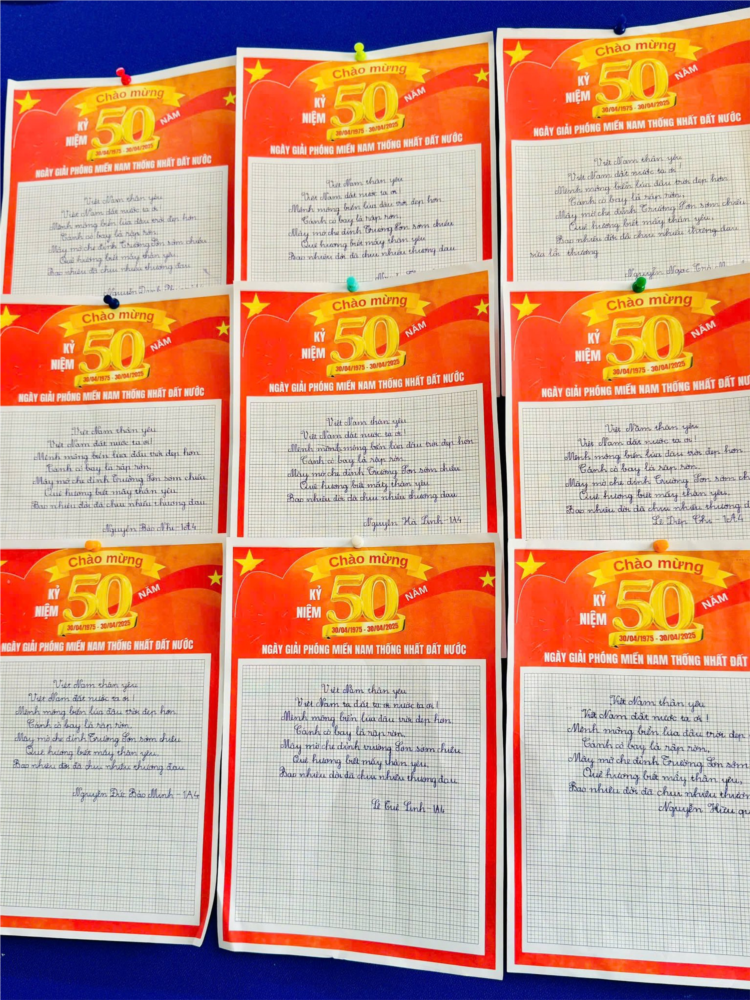 Chào mừng
KỶ NIỆM 50 NĂM
30/04/1975 - 30/04/2025
NGÀY GIẢI PHÓNG MIỀN NAM THỐNG NHẤT ĐẤT NƯỚC
Việt Nam thân yêu
Việt Nam đất nước ta ơi!
Mênh mông biển lúa đâu trời đẹp hơn
Cánh cò bay lả rập rờn,
Mây mờ che đỉnh Trường Sơn sớm chiều
Quê hương biết mấy thân yêu
Bao nhiêu đời đã chịu nhiều thương đau
Chào mừng
KỶ NIỆM 50 NĂM
30/04/1975 - 30/04/2025
NGÀY GIẢI PHÓNG MIỀN NAM THỐNG NHẤT ĐẤT NƯỚC
Việt Nam thân yêu
Việt Nam đất nước ta ơi!
Mênh mông biển lúa đâu trời đẹp hơn
Cánh cò bay lả rập rờn,
Mây mờ che đỉnh Trường Sơn sớm chiều
Quê hương biết mấy thân yêu
Bao nhiêu đời đã chịu nhiều thương đau
Chào mừng
KỶ NIỆM 50 NĂM
30/04/1975 - 30/04/2025
NGÀY GIẢI PHÓNG MIỀN NAM THỐNG NHẤT ĐẤT NƯỚC
Việt Nam thân yêu
Việt Nam đất nước ta ơi!
Mênh mông biển lúa đâu trời đẹp hơn
Cánh cò bay lả rập rờn,
Mây mờ che đỉnh Trường Sơn sớm chiều
Quê hương biết mấy thân yêu,
Bao nhiêu đời đã chịu nhiều thương đau
thương
Nguyễn Ngọc
Chào mừng
KỶ NIỆM 50 NĂM
30/04/1975 - 30/04/2025
NGÀY GIẢI PHÓNG MIỀN NAM THỐNG NHẤT ĐẤT NƯỚC
Việt Nam thân yêu
Việt Nam đất nước ta ơi!
Mênh mông biển lúa đâu trời đẹp hơn
Cánh cò bay lả rập rờn,
Mây mờ che đỉnh Trường Sơn sớm chiều
Quê hương biết mấy thân yêu
Bao nhiêu đời đã chịu nhiều thương đau
Nguyễn Bảo Nhi - 1A4
Chào mừng
KỶ NIỆM 50 NĂM
30/04/1975 - 30/04/2025
NGÀY GIẢI PHÓNG MIỀN NAM THỐNG NHẤT ĐẤT NƯỚC
Việt Nam thân yêu
Việt Nam đất nước ta ơi!
Mênh mông biển lúa đâu trời đẹp hơn
Cánh cò bay lả rập rờn,
Mây mờ che đỉnh Trường Sơn sớm chiều
Quê hương biết mấy thân yêu
Bao nhiêu đời đã chịu nhiều thương đau
Nguyễn Hà Linh - 1A4
Chào mừng
KỶ NIỆM 50 NĂM
30/04/1975 - 30/04/2025
NGÀY GIẢI PHÓNG MIỀN NAM THỐNG NHẤT ĐẤT
Việt Nam thân yêu
Việt Nam đất nước ta ơi!
Mênh mông biển lúa đâu trời đẹp hơn
Cánh cò bay lả rập rờn,
Mây mờ che đỉnh Trường Sơn sớm
Quê hương biết mấy thân yêu,
Bao nhiêu đời đã chịu nhiều thương
Lê Diệp Chi - 1A4
Chào mừng
KỶ NIỆM 50 NĂM
30/04/1975 - 30/04/2025
NGÀY GIẢI PHÓNG MIỀN NAM THỐNG NHẤT ĐẤT NƯỚC
Việt Nam thân yêu
Việt Nam đất nước ta ơi!
Mênh mông biển lúa đâu trời đẹp hơn
Cánh cò bay lả rập rờn,
Mây mờ che đỉnh Trường Sơn sớm chiều
Quê hương biết mấy thân yêu,
Bao nhiêu đời đã chịu nhiều thương đau
Nguyễn Đức Bảo Minh - 1A4
Chào mừng
KỶ NIỆM 50 NĂM
30/04/1975 - 30/04/2025
NGÀY GIẢI PHÓNG MIỀN NAM THỐNG NHẤT ĐẤT NƯỚC
Việt Nam thân yêu
Việt Nam ta đất ta ơi nước ta ơi!
Mênh mông biển lúa đâu trời đẹp hơn
Cánh cò bay lả rập rờn,
Mây mờ che đỉnh trường Sơn sớm chiều
Quê hương biết mấy thân yêu,
Bao nhiêu đời đã chịu nhiều thương đau
Lê Tuệ Linh - 1A4
Chào mừng
KỶ NIỆM 50 NĂM
30/04/1975 - 30/04/2025
NGÀY GIẢI PHÓNG MIỀN NAM THỐNG NHẤT ĐẤT
Việt Nam thân yêu
Việt Nam đất nước ta ơi!
Mênh mông biển lúa đâu trời đẹp
Cánh cò bay lả rập rờn,
Mây mờ che đỉnh Trường Sơn sớm
Quê hương biết mấy thân yêu,
Bao nhiêu đời đã chịu nhiều thương
Nguyễn Hữu